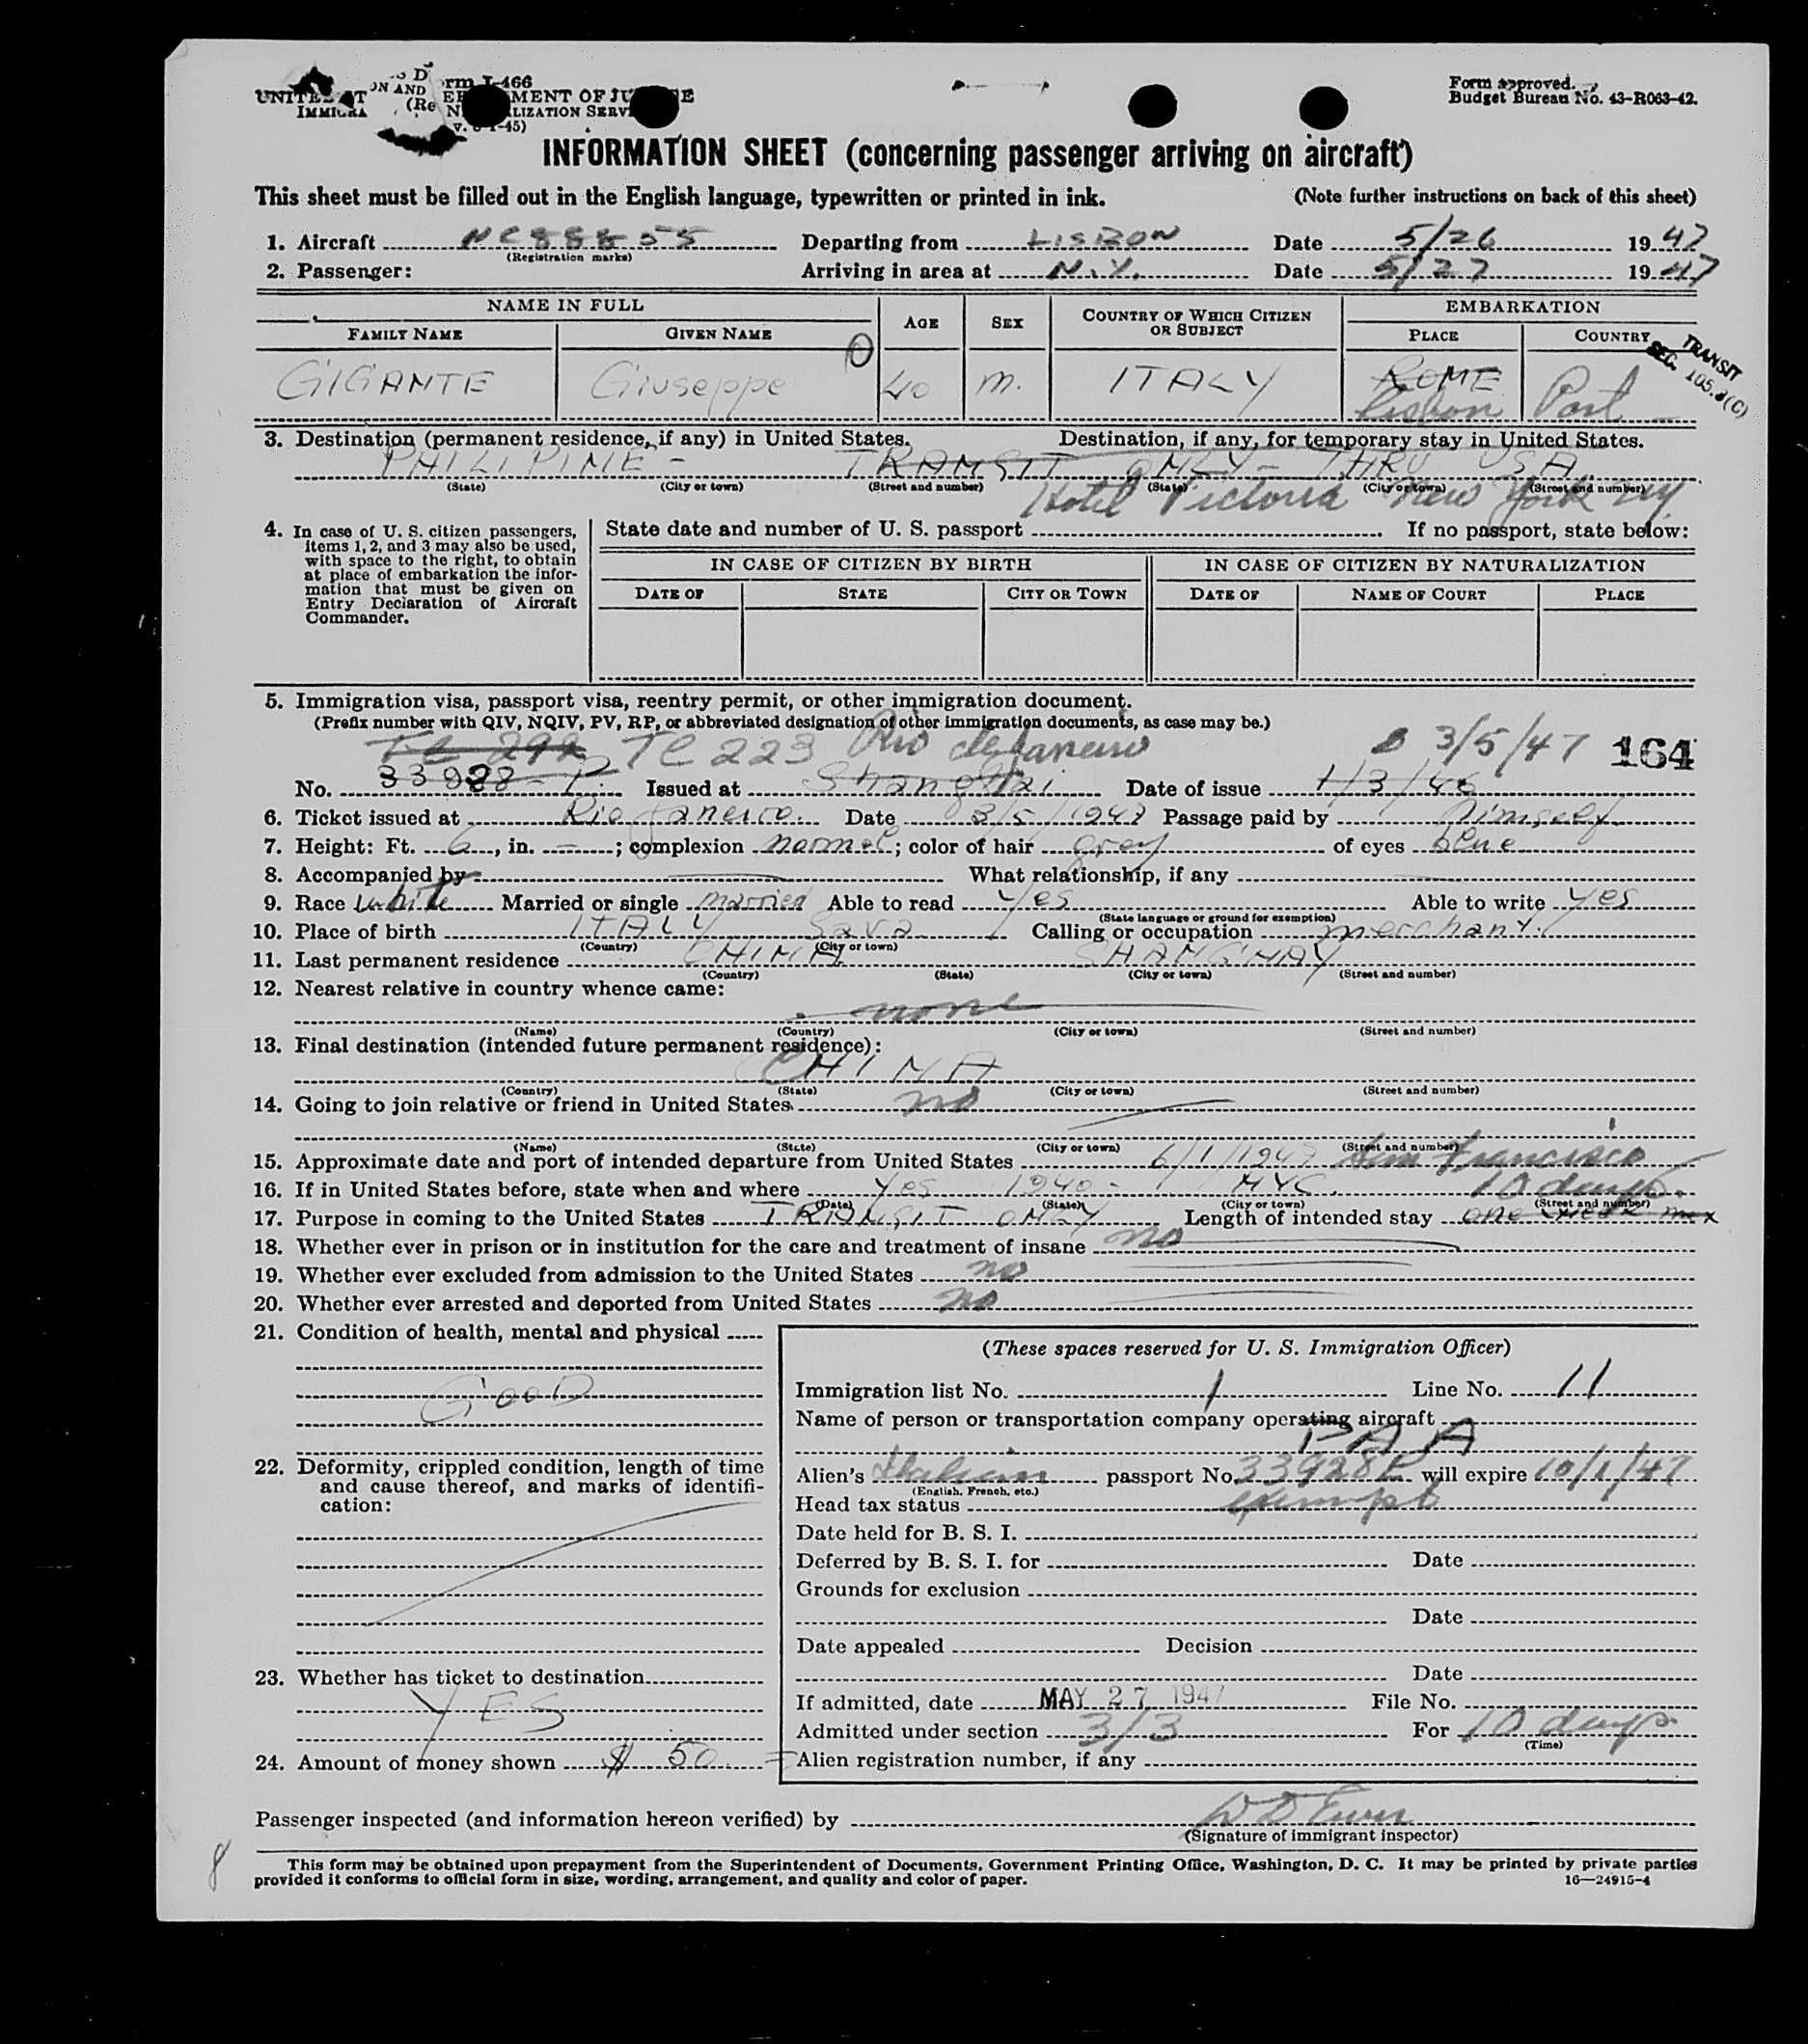 Form I-466
UNITED STATES DEPARTMENT OF JUSTICE
IMMIGRATION AND NATURALIZATION SERVICE
(Rev. 8-1-45)
Form approved.
Budget Bureau No. 43-R063-42.
INFORMATION SHEET (concerning passenger arriving on aircraft)
This sheet must be filled out in the English language, typewritten or printed in ink. (Note further instructions on back of this sheet)
1. Aircraft NC88855 Departing from LISBON Date 5/26 1947
(Registration marks)
2. Passenger: Arriving in area at N.Y. Date 5/27 1947
NAME IN FULL AGE SEX COUNTRY OF WHICH CITIZEN OR SUBJECT EMBARKATION
FAMILY NAME GIVEN NAME PLACE COUNTRY
TRANSIT
SEC. 105.3(C)
GIGANTE Giuseppe 40 m. ITALY ROME
Lisbon Port
3. Destination (permanent residence, if any) in United States. Destination, if any, for temporary stay in United States.
PHILIPINE - TRANSIT ONLY - THRU USA
(State) (City or town) (Street and number) (State) (City or town) (Street and number)
Hotel Victoria New York NY
4. In case of U. S. citizen passengers, items 1, 2, and 3 may also be used, with space to the right, to obtain at place of embarkation the information that must be given on Entry Declaration of Aircraft Commander.
State date and number of U. S. passport If no passport, state below:
IN CASE OF CITIZEN BY BIRTH IN CASE OF CITIZEN BY NATURALIZATION
DATE OF STATE CITY OR TOWN DATE OF NAME OF COURT PLACE
5. Immigration visa, passport visa, reentry permit, or other immigration document.
(Prefix number with QIV, NQIV, PV, RP, or abbreviated designation of other immigration documents, as case may be.)
TC 292 TC 223 Rio de Janeiro 3/5/47 164
No. 33928-P Issued at Shanghai Date of issue 1/3/46
6. Ticket issued at Rio Janeiro. Date 3/5/1947 Passage paid by himself
7. Height: Ft. 6, in. —; complexion normal; color of hair grey of eyes blue
8. Accompanied by What relationship, if any
9. Race White Married or single married Able to read Yes Able to write yes
(State language or ground for exemption)
10. Place of birth ITALY Sava Calling or occupation merchant.
(Country) (City or town)
11. Last permanent residence CHINA SHANGHAY
(Country) (State) (City or town) (Street and number)
12. Nearest relative in country whence came:
none
(Name) (Country) (City or town) (Street and number)
13. Final destination (intended future permanent residence):
CHINA
(Country) (State) (City or town) (Street and number)
14. Going to join relative or friend in United States no
(Name) (State) (City or town) (Street and number)
15. Approximate date and port of intended departure from United States 6/1/1947 San Francisco
16. If in United States before, state when and where Yes 1940 - NYC.
(Date) (State) (City or town) (Street and number)
10 days.
17. Purpose in coming to the United States TRANSIT ONLY Length of intended stay one week max
18. Whether ever in prison or in institution for the care and treatment of insane no
19. Whether ever excluded from admission to the United States no
20. Whether ever arrested and deported from United States no
21. Condition of health, mental and physical
GOOD
22. Deformity, crippled condition, length of time and cause thereof, and marks of identification:
23. Whether has ticket to destination
YES
24. Amount of money shown $ 50
(These spaces reserved for U. S. Immigration Officer)
Immigration list No. 1 Line No. 11
Name of person or transportation company operating aircraft
PAA
Alien's Italian passport No. 33928P will expire 10/1/47
(English, French, etc.)
Head tax status exempt
Date held for B. S. I.
Deferred by B. S. I. for Date
Grounds for exclusion
Date
Date appealed Decision
Date
If admitted, date MAY 27 1947 File No.
Admitted under section 3/3 For 10 days
(Time)
Alien registration number, if any
Passenger inspected (and information hereon verified) by
(Signature of immigrant inspector)
8
This form may be obtained upon prepayment from the Superintendent of Documents, Government Printing Office, Washington, D. C. It may be printed by private parties
provided it conforms to official form in size, wording, arrangement, and quality and color of paper. 16—24915-4